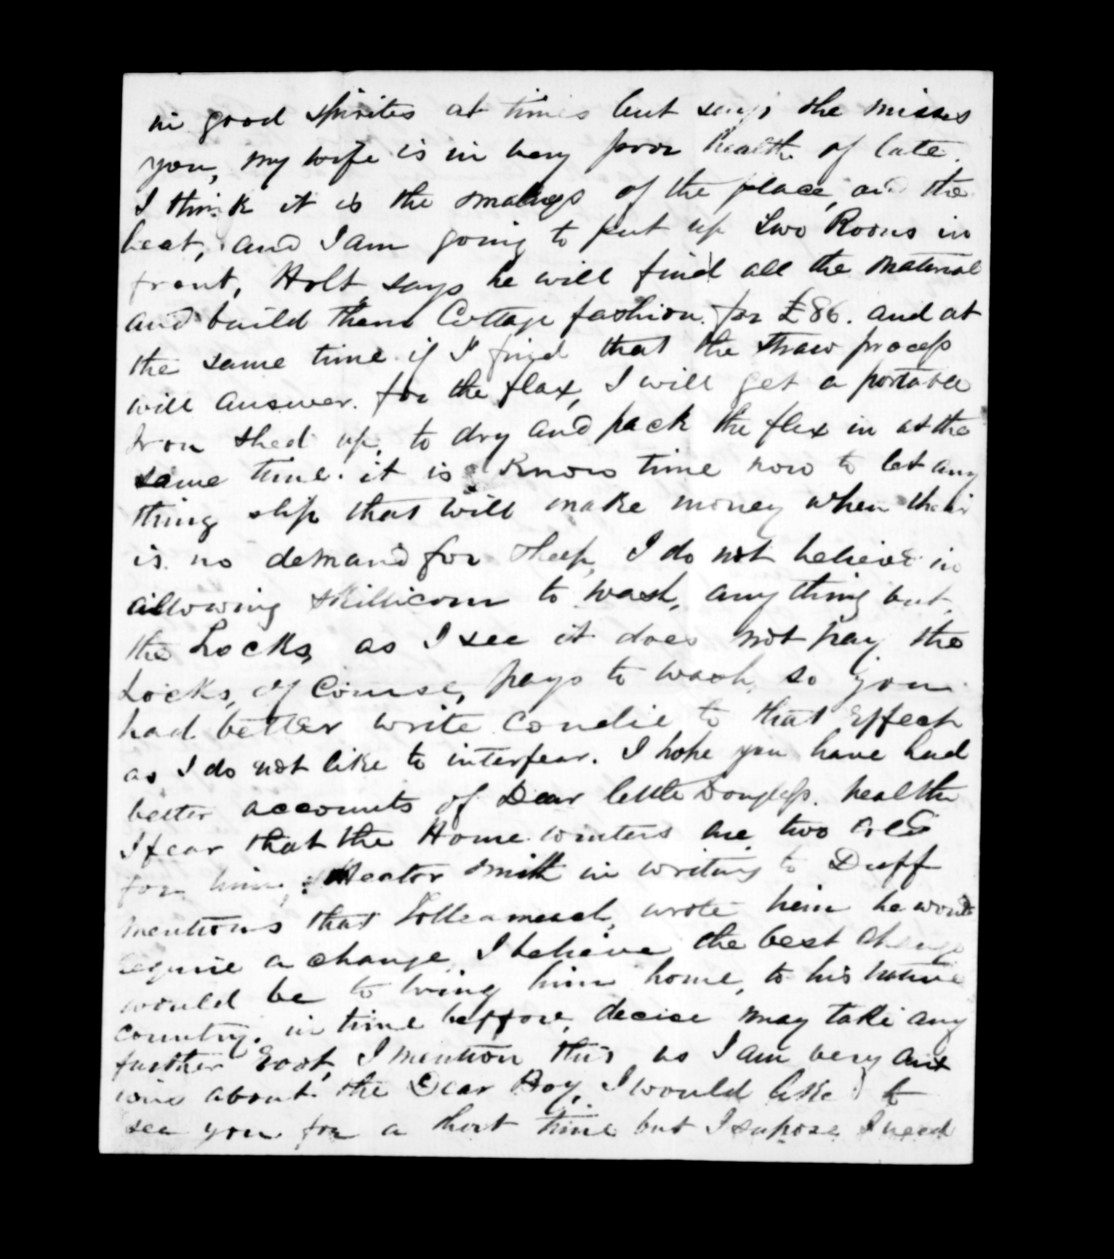 in good spirites at times but says she misses
you, my wife is in very poor health of late.
I think it is the smalness of the place, and the
heat, and I am going to put up two Rooms in
front, Holt says he will find all the material
and build them Cottage fashion. for £86. and at
the same time if I find that the straw process
will answer. for the flax, I will get a portable
Iron shed up, to dry and pack the flax in at the
same time. it is know time now to let any
thing slip that will make money when their
is no demand for sheep, I do not believe in
allowing Skillicorn to wash, any thing but,
the Locks, as I see it does not pay the
Locks, of Course, pays to wash, so you
had better write Condie to that Effect
as I do not like to interfear. I hope you have had
better accounts of Dear little Douglass. health
I fear that the Home winters are two cold
for him, Heator Smith in writing to Duff
mentions that Tollemach, wrote him he would
require a change, I believe the best change
would be to bring him home, to his native
country. in time beffore, decise may take any
further Root, I mention this as I am very anx
ious about the Dear Boy, I would like to
see you for a short time but I supose I need